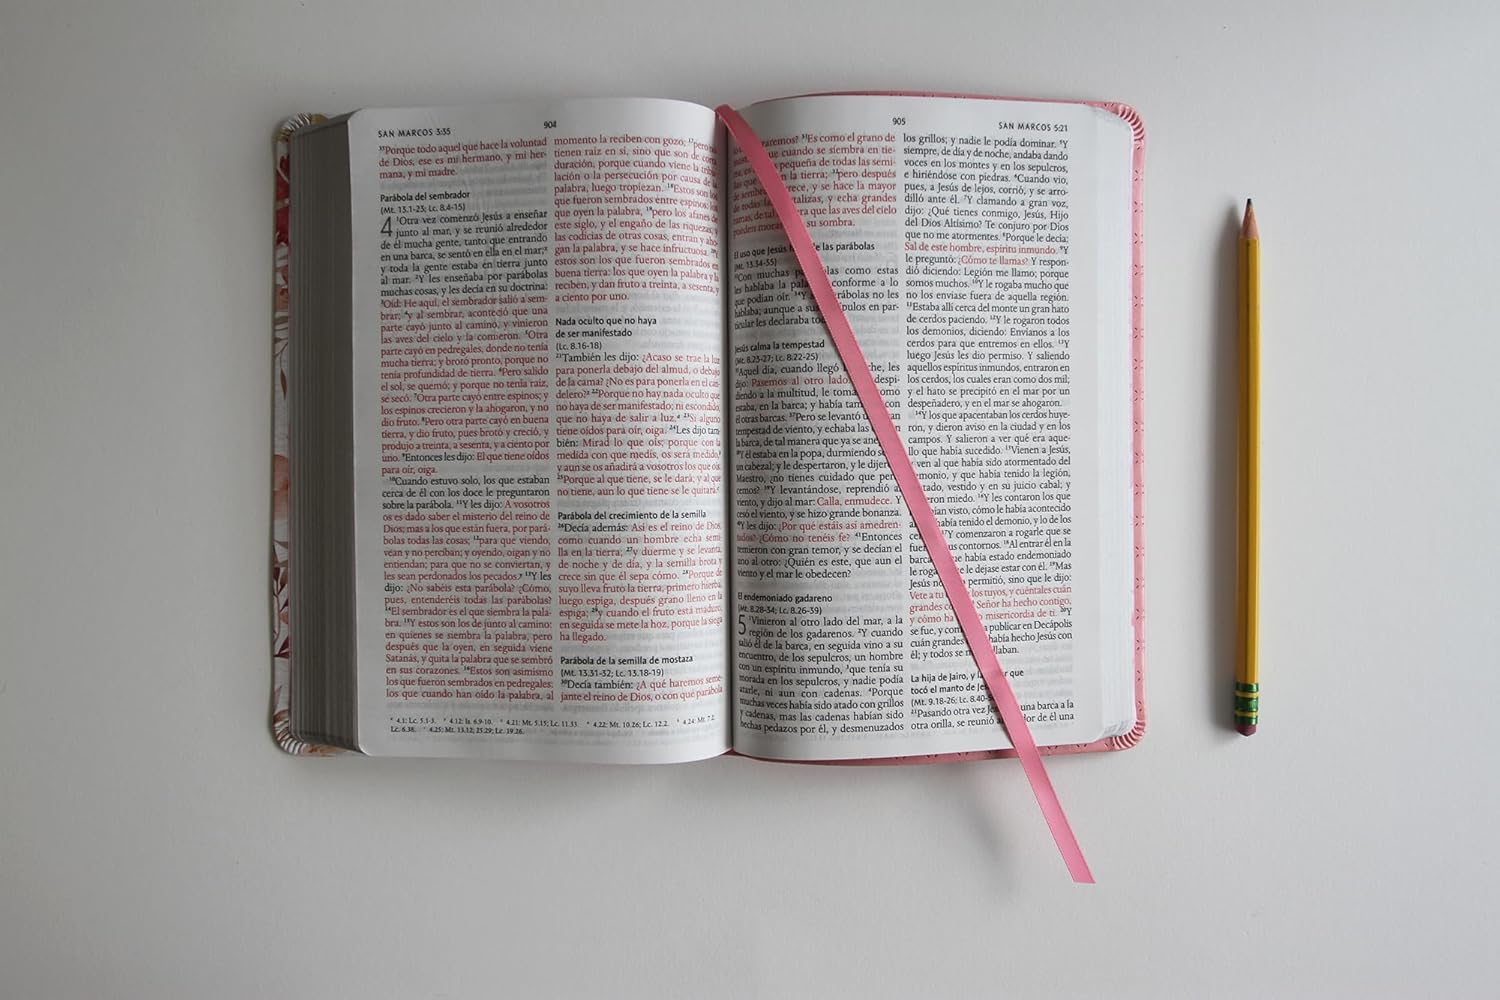 SAN MARCOS 3:35
904
³⁵Porque todo aquel que hace la voluntad
de Dios, ese es mi hermano, y mi her-
mana, y mi madre.
Parábola del sembrador
(Mt. 13.1-23; Lc. 8.4-15)
4 ¹Otra vez comenzó Jesús a enseñar
junto al mar, y se reunió alrededor
de él mucha gente, tanto que entrando
en una barca, se sentó en ella en el mar;ᵃ
y toda la gente estaba en tierra junto
al mar. ²Y les enseñaba por parábolas
muchas cosas, y les decía en su doctrina:
³Oíd: He aquí, el sembrador salió a sem-
brar; ⁴y al sembrar, aconteció que una
parte cayó junto al camino, y vinieron
las aves del cielo y la comieron. ⁵Otra
parte cayó en pedregales, donde no tenía
mucha tierra; y brotó pronto, porque no
tenía profundidad de tierra. ⁶Pero salido
el sol, se quemó; y porque no tenía raíz,
se secó. ⁷Otra parte cayó entre espinos; y
los espinos crecieron y la ahogaron, y no
dio fruto. ⁸Pero otra parte cayó en buena
tierra, y dio fruto, pues brotó y creció, y
produjo a treinta, a sesenta, y a ciento por
uno. ⁹Entonces les dijo: El que tiene oídos
para oír, oiga.
¹⁰Cuando estuvo solo, los que estaban
cerca de él con los doce le preguntaron
sobre la parábola. ¹¹Y les dijo: A vosotros
os es dado saber el misterio del reino de
Dios; mas a los que están fuera, por pará-
bolas todas las cosas; ¹²para que viendo,
vean y no perciban; y oyendo, oigan y no
entiendan; para que no se conviertan, y
les sean perdonados los pecados.ᵇ ¹³Y les
dijo: ¿No sabéis esta parábola? ¿Cómo,
pues, entenderéis todas las parábolas?
¹⁴El sembrador es el que siembra la pala-
bra. ¹⁵Y estos son los de junto al camino:
en quienes se siembra la palabra, pero
después que la oyen, en seguida viene
Satanás, y quita la palabra que se sembró
en sus corazones. ¹⁶Estos son asimismo
los que fueron sembrados en pedregales:
los que cuando han oído la palabra, al
momento la reciben con gozo; ¹⁷pero no
tienen raíz en sí, sino que son de corta
duración, porque cuando viene la tribu-
lación o la persecución por causa de la
palabra, luego tropiezan. ¹⁸Estos son los
que fueron sembrados entre espinos: los
que oyen la palabra, ¹⁹pero los afanes de
este siglo, y el engaño de las riquezas, y
las codicias de otras cosas, entran y aho-
gan la palabra, y se hace infructuosa. ²⁰Y
estos son los que fueron sembrados en
buena tierra: los que oyen la palabra y la
reciben, y dan fruto a treinta, a sesenta, y
a ciento por uno.
Nada oculto que no haya
de ser manifestado
(Lc. 8.16-18)
²¹También les dijo: ¿Acaso se trae la luz
para ponerla debajo del almud, o debajo
de la cama? ¿No es para ponerla en el can-
delero?ᶜ ²²Porque no hay nada oculto que
no haya de ser manifestado; ni escondido,
que no haya de salir a luz.ᵈ ²³Si alguno
tiene oídos para oír, oiga. ²⁴Les dijo tam-
bién: Mirad lo que oís; porque con la
medida con que medís, os será medido,ᵉ
y aun se os añadirá a vosotros los que oís.
²⁵Porque al que tiene, se le dará; y al que
no tiene, aun lo que tiene se le quitará.ᶠ
Parábola del crecimiento de la semilla
²⁶Decía además: Así es el reino de Dios,
como cuando un hombre echa semi-
lla en la tierra; ²⁷y duerme y se levanta,
de noche y de día, y la semilla brota y
crece sin que él sepa cómo. ²⁸Porque de
suyo lleva fruto la tierra, primero hierba,
luego espiga, después grano lleno en la
espiga; ²⁹y cuando el fruto está maduro,
en seguida se mete la hoz, porque la siega
ha llegado.
Parábola de la semilla de mostaza
(Mt. 13.31-32; Lc. 13.18-19)
³⁰Decía también: ¿A qué haremos seme-
jante el reino de Dios, o con qué parábola
4.1: Lc. 5.1-3. 4.12: Is. 6.9-10. 4.21: Mt. 5.15; Lc. 11.33. 4.22: Mt. 10.26; Lc. 12.2. 4.24: Mt. 7.2;
Lc. 6.38. 4.25: Mt. 13.12; 25.29; Lc. 19.26.
905
SAN MARCOS 5:21
lo ³¹Es como el grano de
que cuando se siembra en tie-
pequeña de todas las semi-
en la tierra; ³²pero después
de sembrado, crece, y se hace la mayor
de todas las hortalizas, y echa grandes
ramas, de tal manera que las aves del cielo
pueden morar su sombra.
El uso que Jesús de las parábolas
(Mt. 13.34-35)
³³Con muchas parábolas como estas
les hablaba la palabra, conforme a lo
que podían oír. ³⁴Y sin parábolas no les
hablaba; aunque a sus discípulos en par-
ticular les declaraba todo.
Jesús calma la tempestad
(Mt. 8.23-27; Lc. 8.22-25)
³⁵Aquel día, cuando llegó la noche, les
dijo: Pasemos al otro lado. despi-
diendo a la multitud, le tomaron como
estaba, en la barca; y había también con
él otras barcas. ³⁷Pero se levantó una gran
tempestad de viento, y echaba las en
la barca, de tal manera que ya se anegaba.
³⁸Y él estaba en la popa, durmiendo sobre
un cabezal; y le despertaron, y le dijeron:
Maestro, ¿no tienes cuidado que pere-
cemos? ³⁹Y levantándose, reprendió al
viento, y dijo al mar: Calla, enmudece. Y
cesó el viento, y se hizo grande bonanza.
⁴⁰Y les dijo: ¿Por qué estáis así amedren-
tados? ¿Cómo no tenéis fe? ⁴¹Entonces
temieron con gran temor, y se decían el
uno al otro: ¿Quién es este, que aun el
viento y el mar le obedecen?
El endemoniado gadareno
(Mt. 8.28-34; Lc. 8.26-39)
5 ¹Vinieron al otro lado del mar, a la
región de los gadarenos. ²Y cuando
salió él de la barca, en seguida vino a su
encuentro, de los sepulcros, un hombre
con un espíritu inmundo, ³que tenía su
morada en los sepulcros, y nadie podía
atarle, ni aun con cadenas. ⁴Porque
muchas veces había sido atado con grillos
y cadenas, mas las cadenas habían sido
hechas pedazos por él, y desmenuzados
los grillos; y nadie le podía dominar. ⁵Y
siempre, de día y de noche, andaba dando
voces en los montes y en los sepulcros,
e hiriéndose con piedras. ⁶Cuando vio,
pues, a Jesús de lejos, corrió, y se arro-
dilló ante él. ⁷Y clamando a gran voz,
dijo: ¿Qué tienes conmigo, Jesús, Hijo
del Dios Altísimo? Te conjuro por Dios
que no me atormentes. ⁸Porque le decía:
Sal de este hombre, espíritu inmundo. ⁹Y
le preguntó: ¿Cómo te llamas? Y respon-
dió diciendo: Legión me llamo; porque
somos muchos. ¹⁰Y le rogaba mucho que
no los enviase fuera de aquella región.
¹¹Estaba allí cerca del monte un gran hato
de cerdos paciendo. ¹²Y le rogaron todos
los demonios, diciendo: Envíanos a los
cerdos para que entremos en ellos. ¹³Y
luego Jesús les dio permiso. Y saliendo
aquellos espíritus inmundos, entraron en
los cerdos, los cuales eran como dos mil;
y el hato se precipitó en el mar por un
despeñadero, y en el mar se ahogaron.
¹⁴Y los que apacentaban los cerdos huye-
ron, y dieron aviso en la ciudad y en los
campos. Y salieron a ver qué era aque-
llo que había sucedido. ¹⁵Vienen a Jesús,
y ven al que había sido atormentado del
demonio, y que había tenido la legión,
sentado, vestido y en su juicio cabal; y
tuvieron miedo. ¹⁶Y les contaron los que
habían visto, cómo le había acontecido
al que había tenido el demonio, y lo de los
cerdos. ¹⁷Y comenzaron a rogarle que se
fuera de sus contornos. ¹⁸Al entrar él en la
barca, el que había estado endemoniado
le rogaba que le dejase estar con él. ¹⁹Mas
Jesús no se lo permitió, sino que le dijo:
Vete a tu casa, a los tuyos, y cuéntales cuán
grandes cosas el Señor ha hecho contigo,
y cómo ha tenido misericordia de ti. ²⁰Y
se fue, y comenzó a publicar en Decápolis
cuán grandes cosas había hecho Jesús con
él; y todos se maravillaban.
La hija de Jairo, y la mujer que
tocó el manto de Jesús
(Mt. 9.18-26; Lc. 8.40-56)
²¹Pasando otra vez Jesús en una barca a la
otra orilla, se reunió alrededor de él una